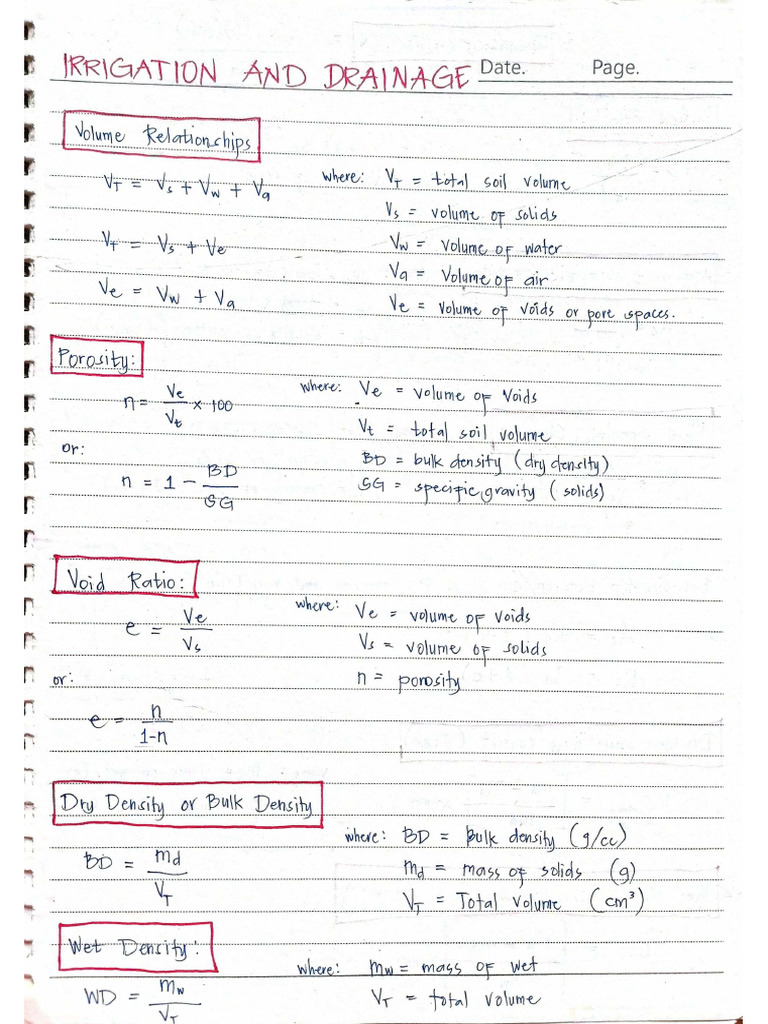 IRRIGATION AND DRAINAGE Date. Page.
Volume Relationships
V_T = V_s + V_w + V_a where: V_T = total soil volume
V_s = volume of solids
V_T = V_s + V_e V_w = volume of water
V_a = Volume of air
V_e = V_w + V_a V_e = volume of voids or pore spaces.
Porosity:
n = V_e / V_t × 100 where: V_e = volume of Voids
V_t = total soil volume
or: BD = bulk density (dry density)
n = 1 - BD / SG SG = specific gravity (solids)
Void Ratio:
e = V_e / V_s where: V_e = volume of voids
V_s = volume of solids
or: n = porosity
e = n / 1-n
Dry Density or Bulk Density
BD = m_d / V_T where: BD = Bulk density (g/cc)
m_d = mass of solids (g)
V_T = Total volume (cm³)
Wet Density:
WD = m_w / V_T where: m_w = mass of wet
V_T = total volume